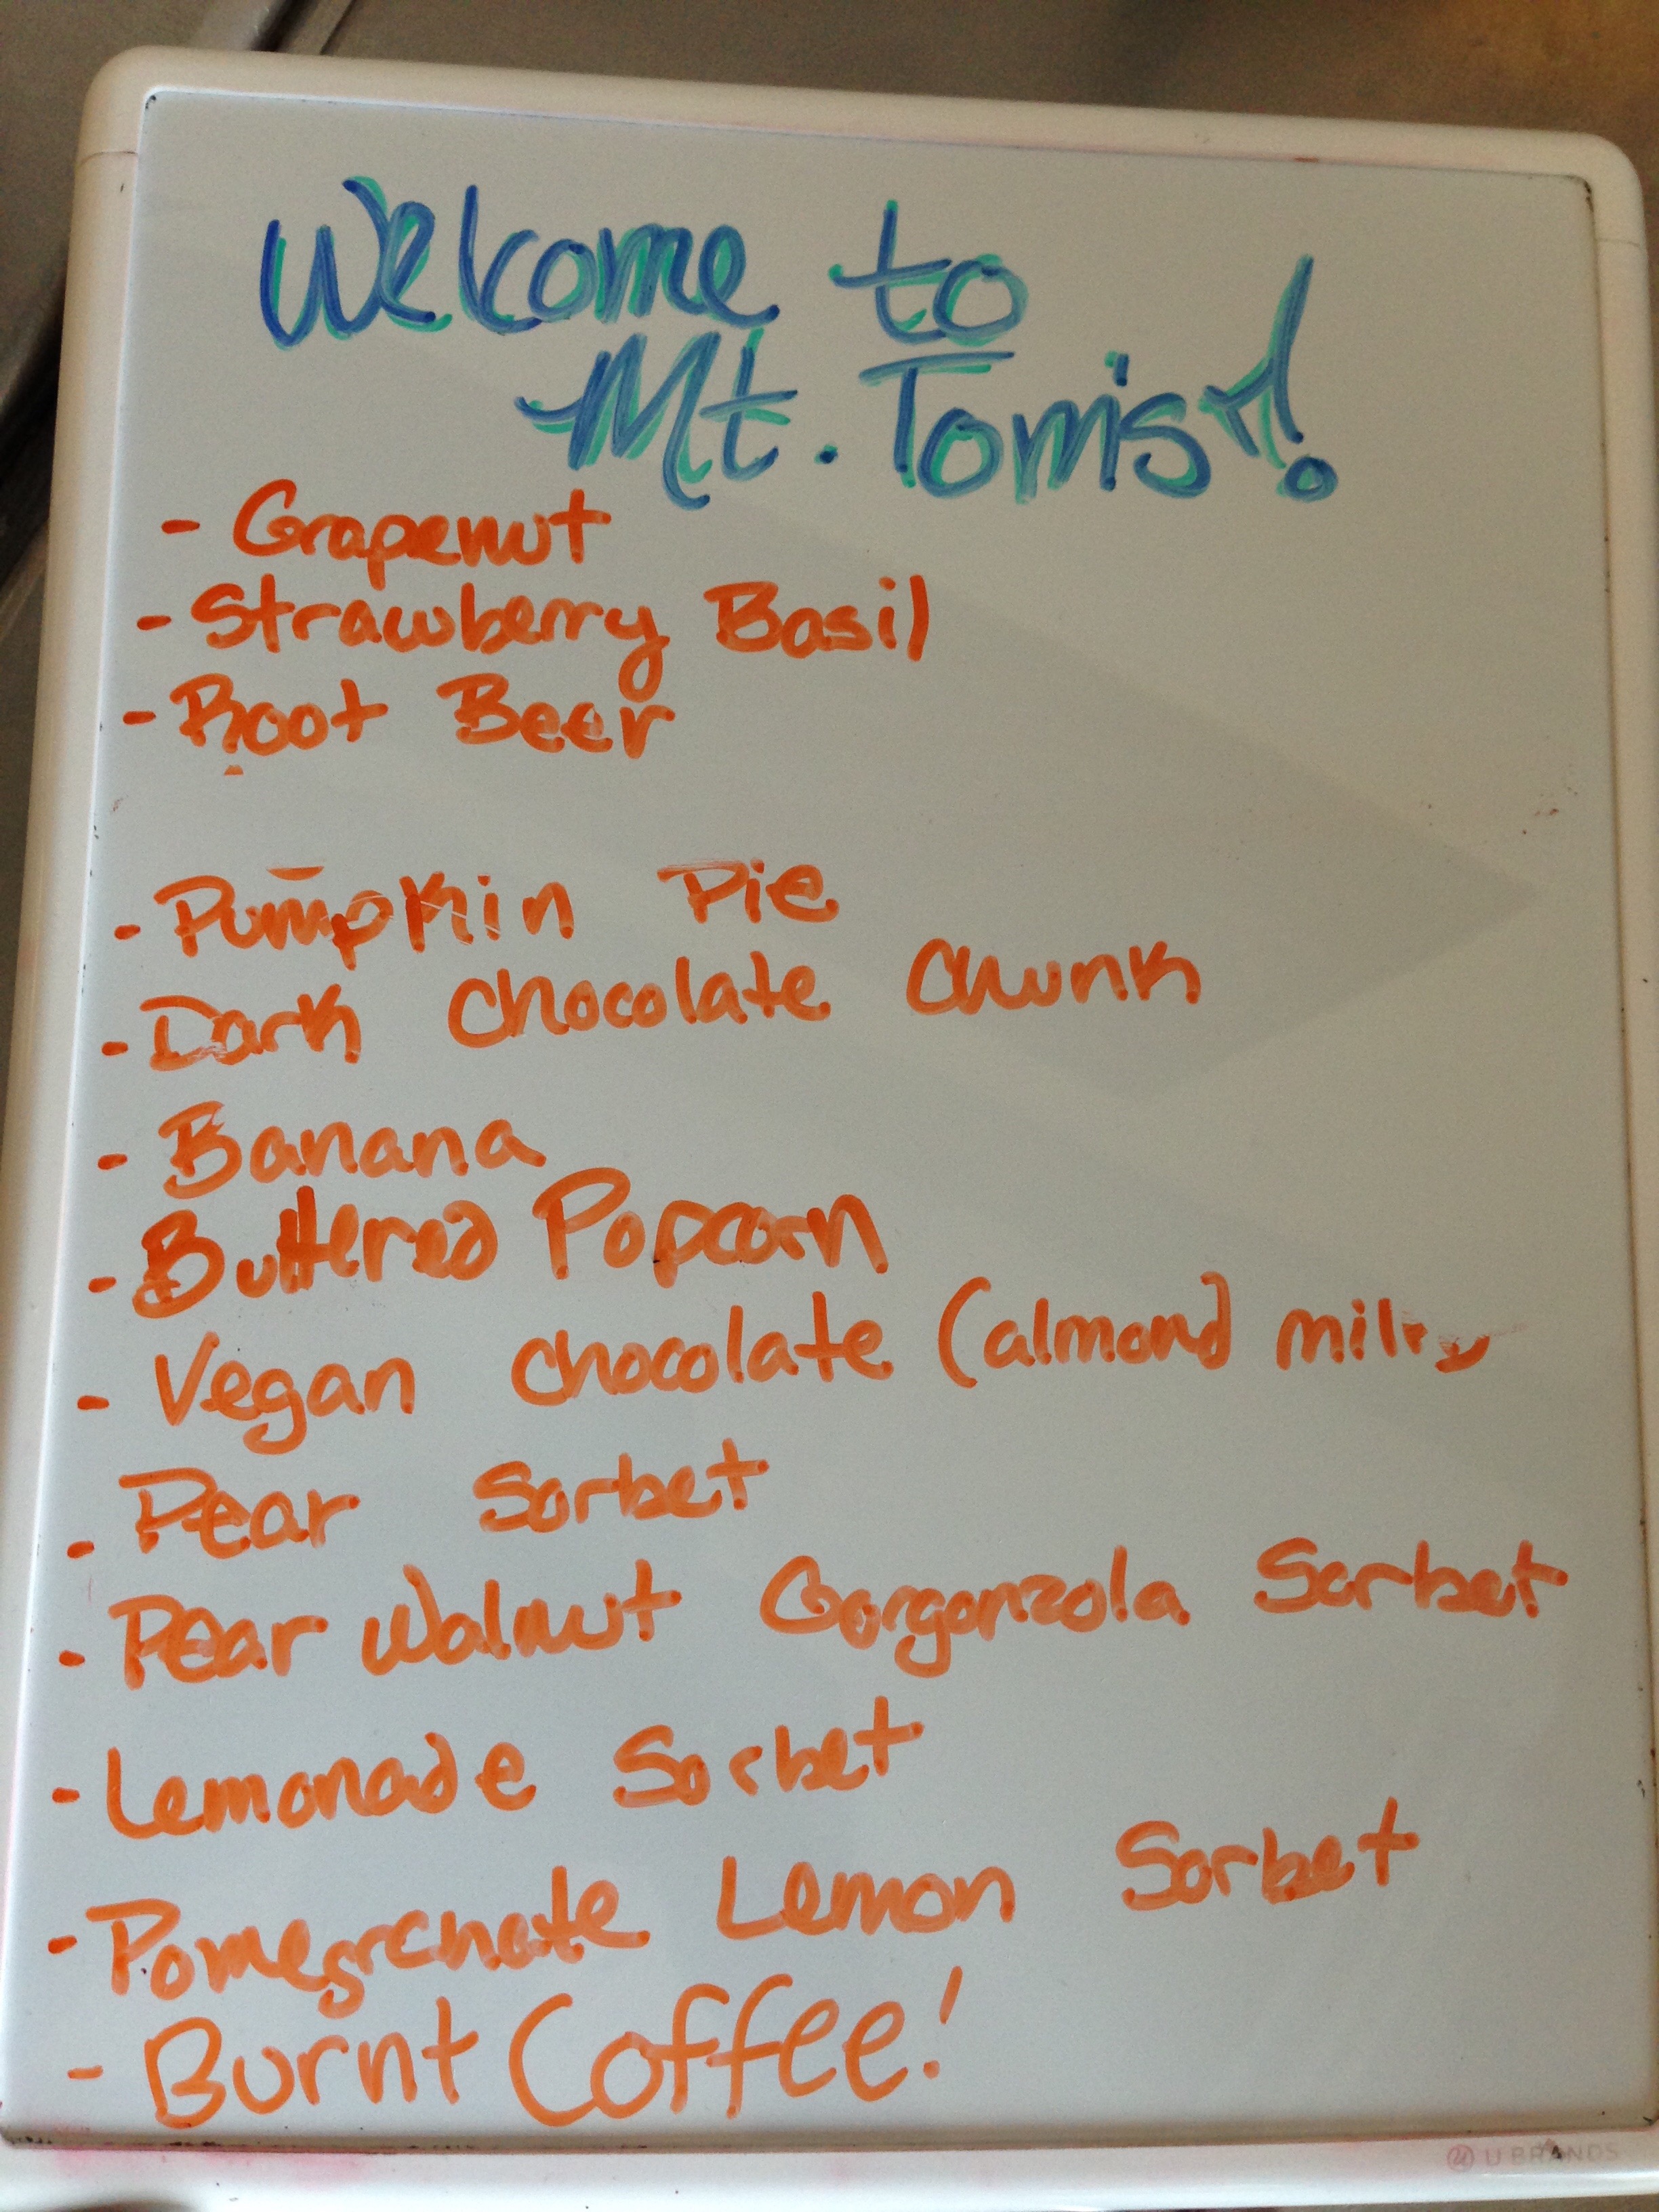 Welcome to
Mt. Tom's!
- Grapenut
- Strawberry Basil
- Root Beer
- Pumpkin Pie
- Dark Chocolate Chunk
- Banana
- Buttered Popcorn
- Vegan Chocolate (almond milk)
- Pear Sorbet
- Pear Walnut Gorgonzola Sorbet
- Lemonade Sorbet
- Pomegranate Lemon Sorbet
- Burnt Coffee!
U BRANDS